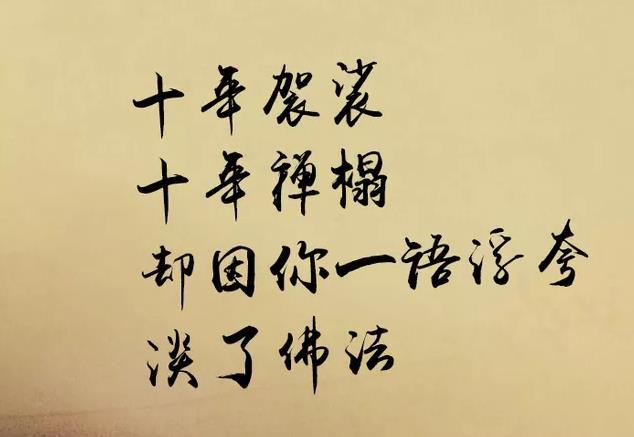 十年袈裟
十年禅榻
却因你一语浮夸
淡了佛法